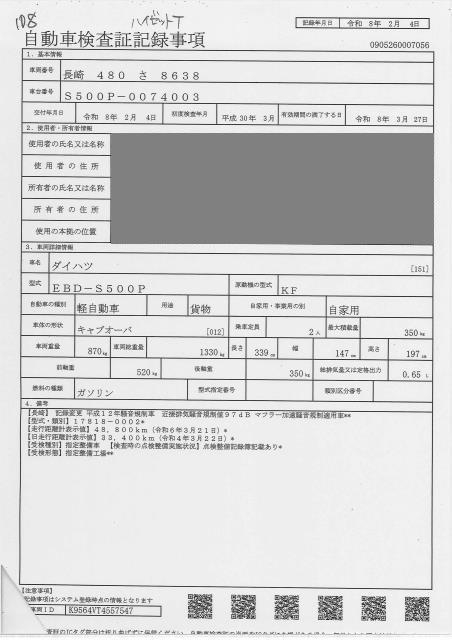 108 ハイゼットT
記録年月日 令和 8年 2月 4日
自動車検査証記録事項
0905260007056
1．基本情報
車両番号 長崎 480 さ 8638
車台番号 S500P-0074003
交付年月日 令和 8年 2月 4日 初度検査年月 平成 30年 3月 有効期間の満了する日 令和 8年 3月 27日
2．使用者・所有者情報
使用者の氏名又は名称
使用者の住所
所有者の氏名又は名称
所有者の住所
使用の本拠の位置
3．車両詳細情報
車名 ダイハツ [151]
型式 EBD-S500P 原動機の型式 KF
自動車の種別 軽自動車 用途 貨物 自家用・事業用の別 自家用
車体の形状 キャブオーバ [012] 乗車定員 2人 最大積載量 350kg
車両重量 870kg 車両総重量 1330kg 長さ 339cm 幅 147cm 高さ 197cm
前軸重 520kg 後軸重 350kg 総排気量又は定格出力 0.65L
燃料の種類 ガソリン 型式指定番号 類別区分番号
4．備考
【長崎】 記録変更 平成12年騒音規制車 近接排気騒音規制値97dB マフラー加速騒音規制適用車**
【型式・類別】17818-0002*
【走行距離計表示値】48,800km（令和6年3月21日）*
【旧走行距離計表示値】33,400km（令和4年3月22日）*
【受検種別】指定整備車 【検査時の点検整備実施状況】点検整備記録簿記載あり*
【受検形態】指定整備工場**
【注意事項】
記録事項はシステム登録時点の情報となります
車両ID K9564VT4557547